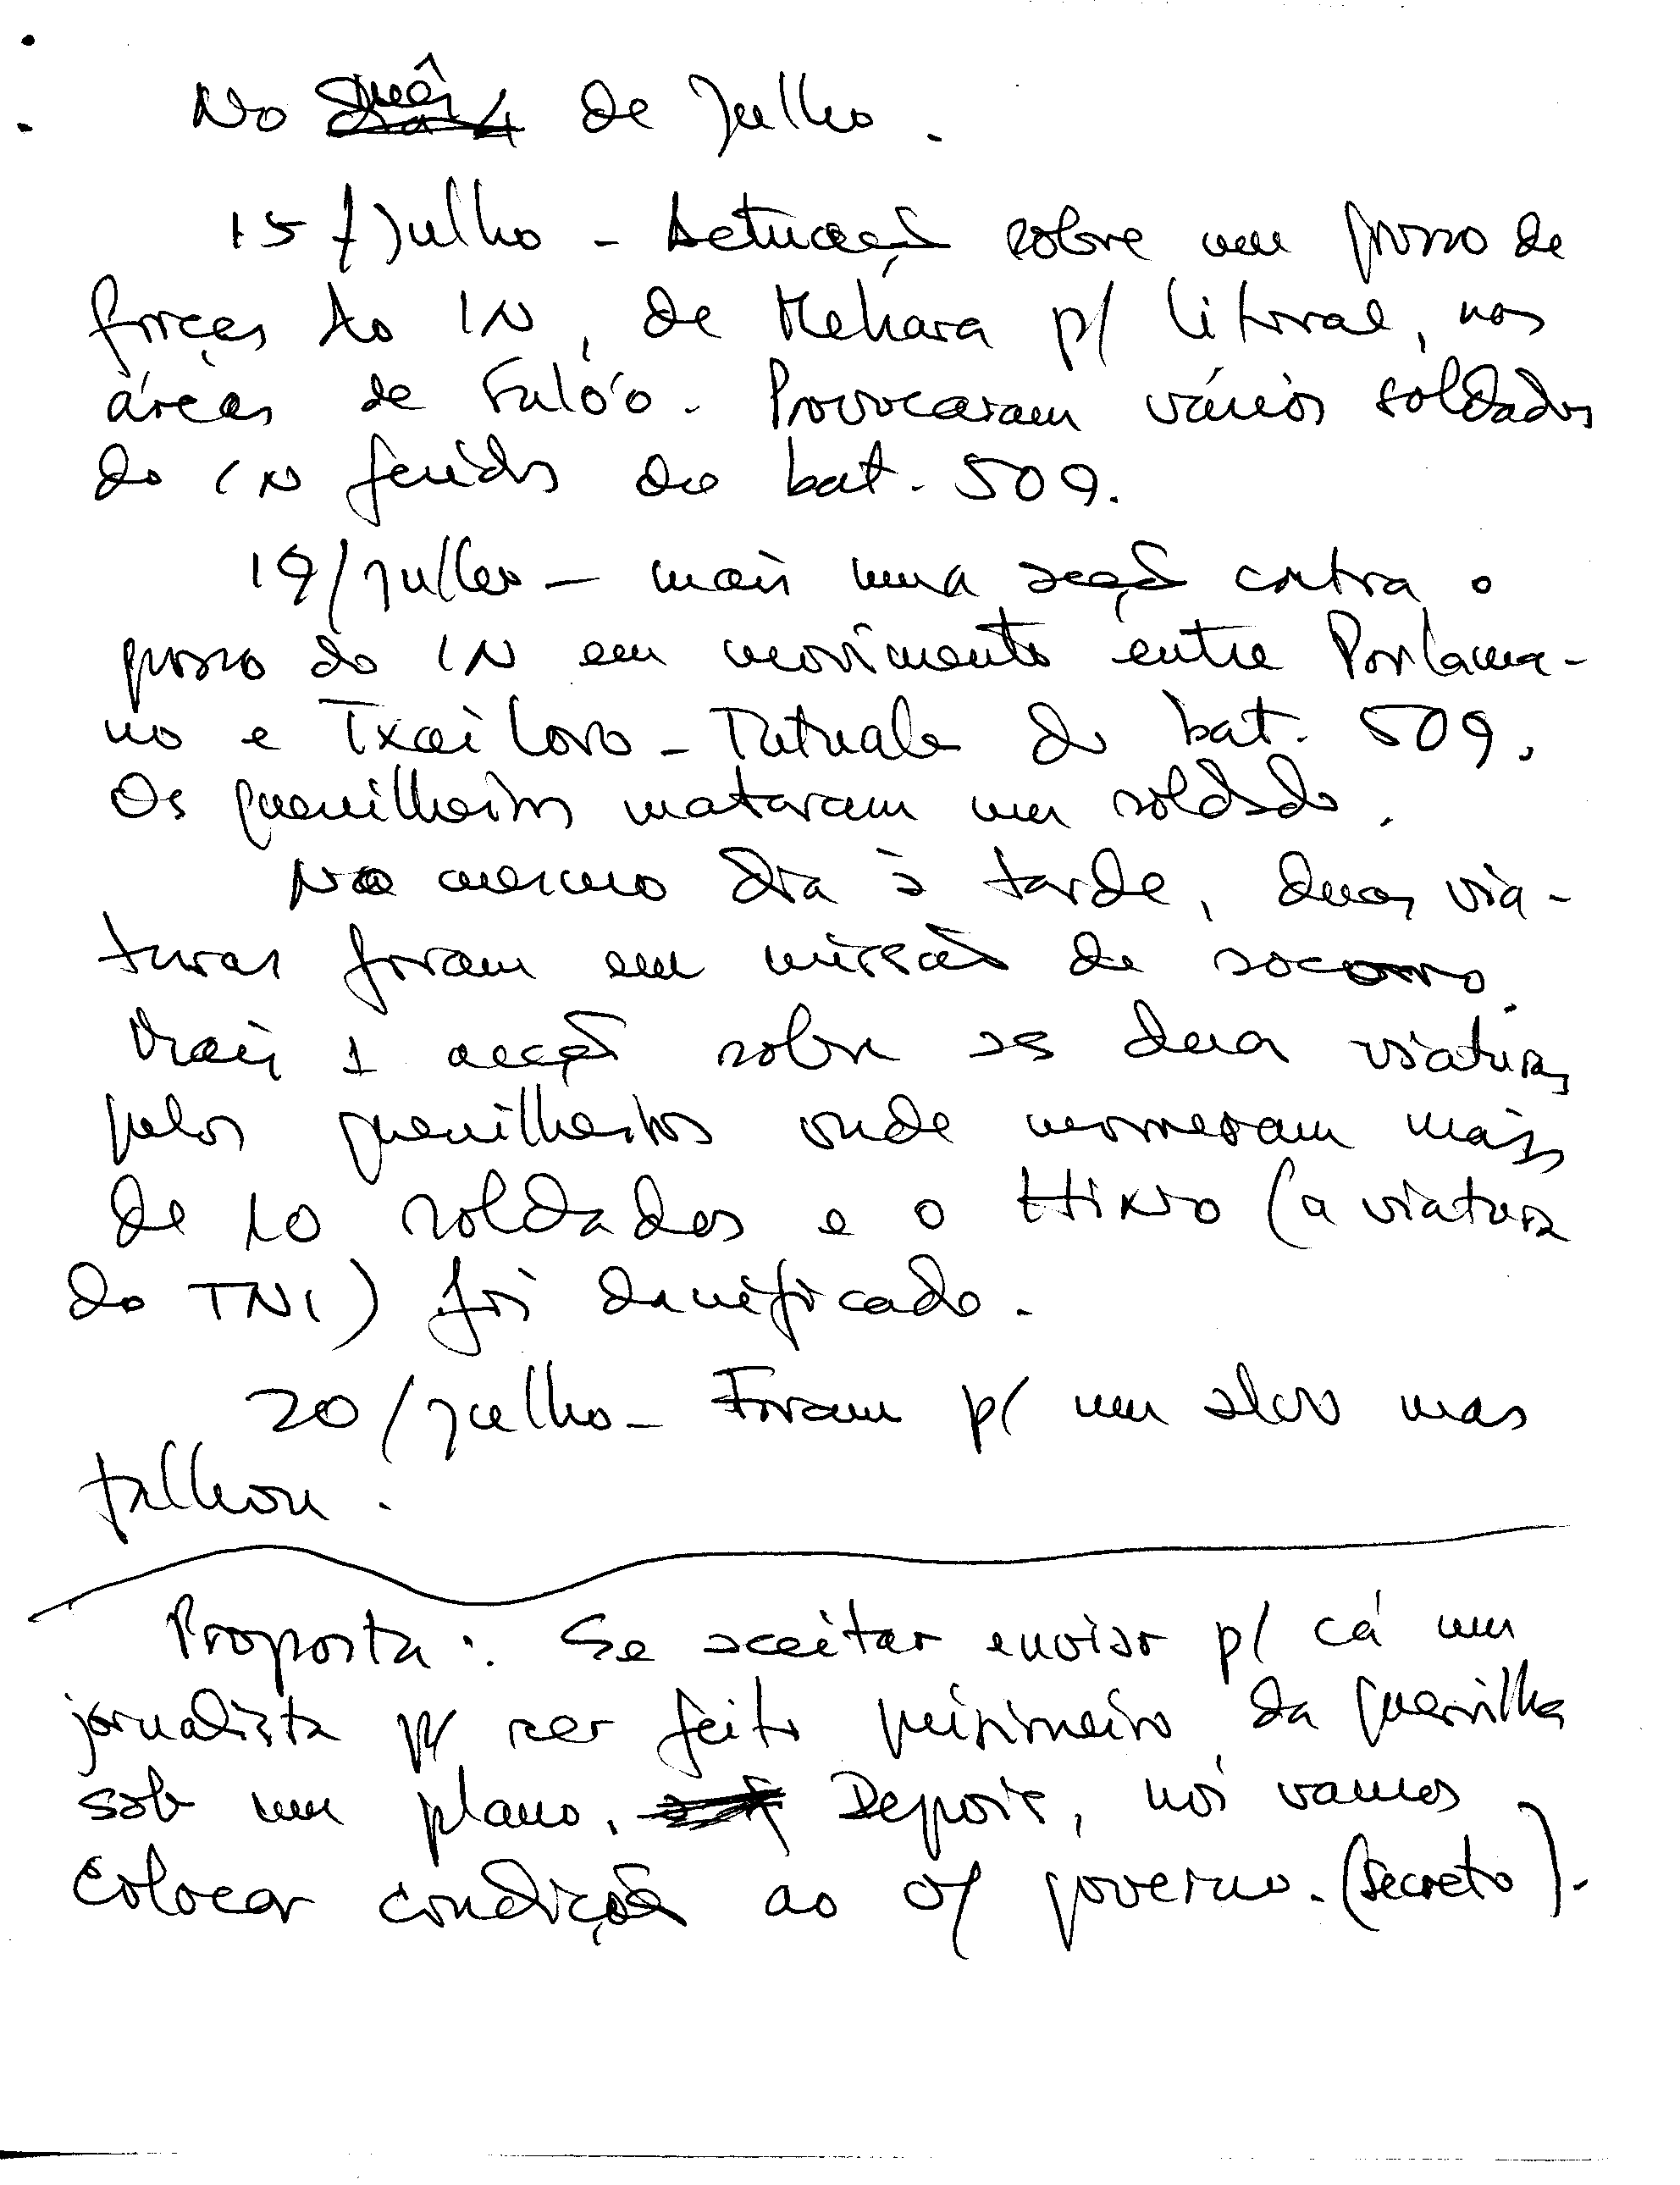 No mês de Julho.
15/Julho - Actuação sobre um grosso de
forças do IN, de Mehara p/ litoral, nas
áreas de Fuló'o. Provocaram vários soldados
do IN feridos do bat. 509.
19/julho - mais uma acção contra o
grosso do IN em movimento entre Porlama-
no e Txai Loro - Tutuala do bat. 509.
Os guerrilheiros mataram um soldado.
No mesmo dia à tarde, duas via-
turas foram em missão de socorro.
Mais 1 acção sobre as duas viaturas
pelos guerrilheiros onde morreram mais
de 10 soldados e o HiNO (a viatura
do TNI) foi danificado.
20/julho - Foram p/ um alvo mas
falhou.
Proposta: Se aceitar enviar p/ cá um
jornalista p/ ser feito prisioneiro da guerrilha
sob um plano. Depois, nós vamos
colocar condição ao s/ governo. (secreto).